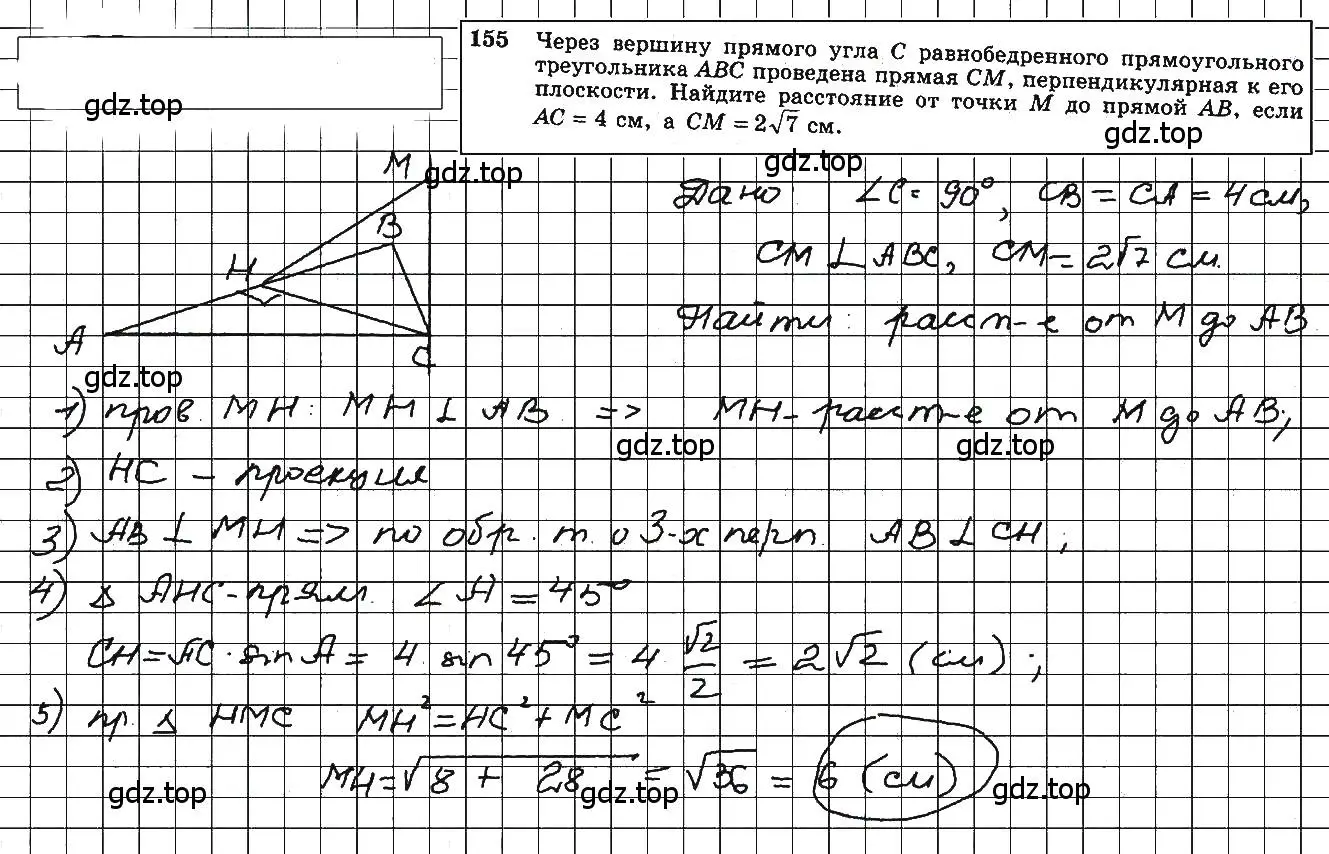 155 Через вершину прямого угла C равнобедренного прямоугольного
треугольника ABC проведена прямая CM, перпендикулярная к его
плоскости. Найдите расстояние от точки M до прямой AB, если
AC = 4 см, а CM = 2√7 см.
gdz.top
gdz.top
gdz.top
gdz.top
M
B
H
A
C
Дано: ∠C = 90°, CB = CA = 4 см,
CM ⊥ ABC, CM = 2√7 см.
Найти: расст-е от M до AB
gdz.top
1) пров. MH: MH ⊥ AB => MH - расст-е от M до AB;
gdz.top
gdz.top
2) HC - проекция
3) AB ⊥ MH => по обр. т. о 3-х перп. AB ⊥ CH;
4) Δ AHC - прям. ∠A = 45°
CH = AC · sin A = 4 sin 45° = 4 √2/2 = 2√2 (см);
5) пр. Δ HMC MH² = HC² + MC²
MH = √8 + 28 = √36 = 6 (см)
gdz.top
gdz.top
gdz.top